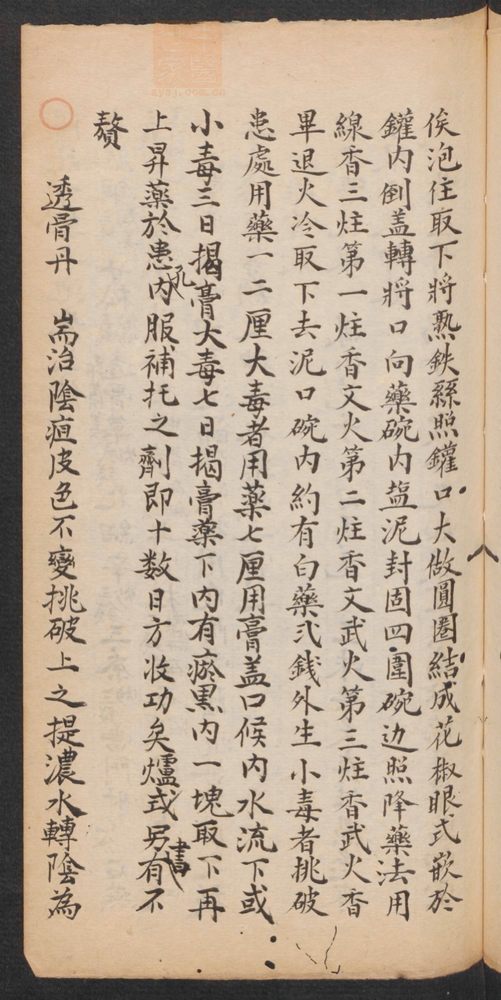 俟泡住取下將熟鉄絲照鑵口大做圓圈結成花椒眼式嵌於
鑵内倒盖轉將口向藥碗内盐泥封固四圍碗边照降藥法用
線香三炷第一炷香文火第二炷香文武火第三炷香武火香
畢退火冷取下去泥口碗内約有白藥弍銭外生小毒者挑破
患處用藥一二厘大毒者用藥七厘用膏盖口候内水流下或
小毒三日揭膏大毒七日揭膏藥下内有瘀黒内一塊取下再
上昇藥於患内服補托之劑即十数日方收功矣爐式另有書不
贅
透骨丹 耑治陰疽皮色不變挑破上之提濃水轉陰為